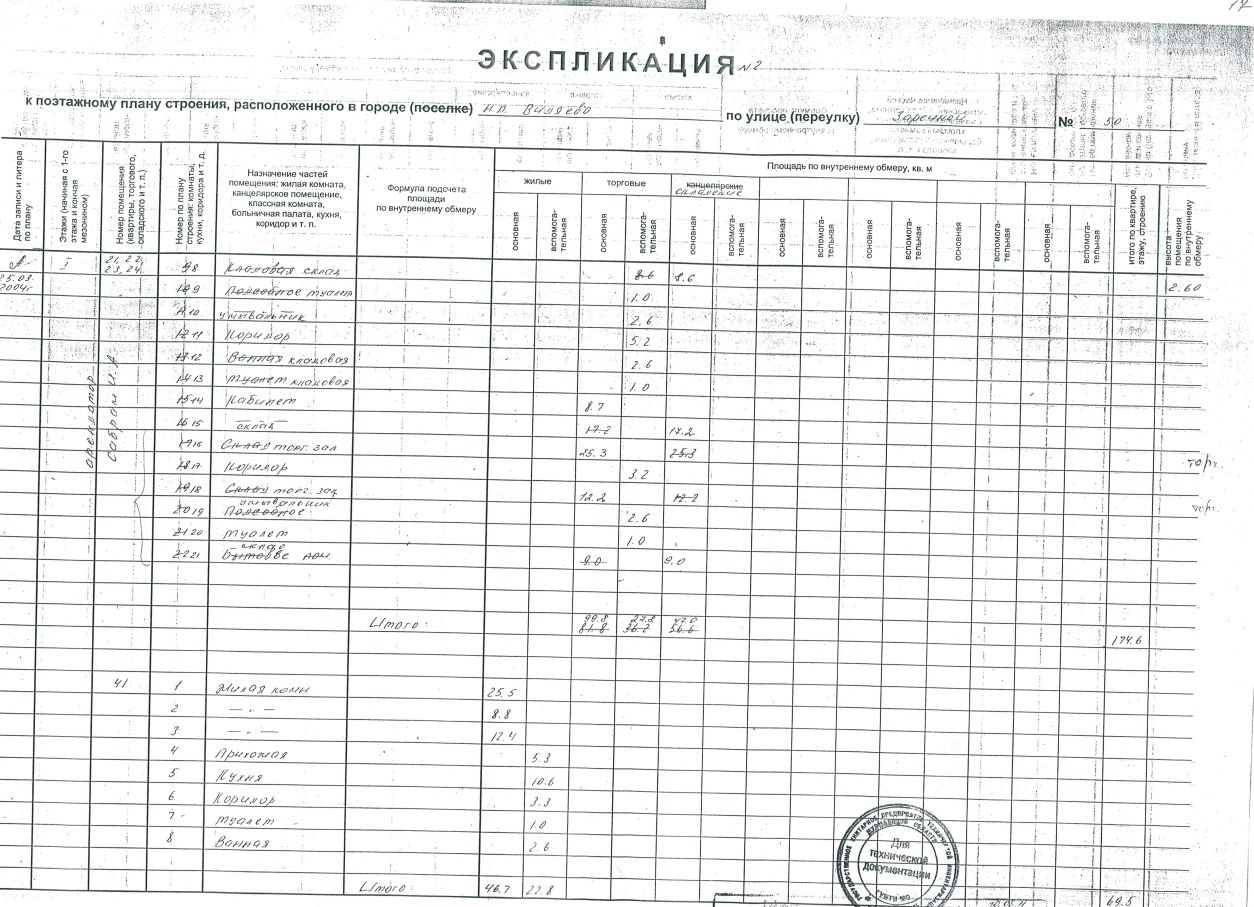 17
ЭКСПЛИКАЦИЯ №2
к поэтажному плану строения, расположенного в городе (поселке) н.п. Видяево по улице (переулку) Заречная № 50
Дата записи и литера по плану
Этажи (начиная с 1-го этажа и кончая мезонином)
Номер помещения (квартиры, торгового, складского и т. п.)
Номер по плану строения: комнаты, кухни, коридора и т. д.
Назначение частей
помещения: жилая комната,
канцелярское помещение,
классная комната,
больничная палата, кухня,
коридор и т. п.
Формула подсчета
площади
по внутреннему обмеру
Площадь по внутреннему обмеру, кв. м
жилые торговые канцелярские
складские
основная вспомога-тельная основная вспомога-тельная основная вспомога-тельная основная вспомога-тельная основная вспомога-тельная основная вспомога-тельная основная вспомога-тельная
итого по квартире, этажу, строению
высота помещения по внутреннему обмеру
А I 21, 22, 23, 24 9 8 Кладовая склад 8.6 8.6
25.03 2004г 10 9 Подсобное туалет 1.0 2.60
11 10 умывальник 2.6
12 11 Коридор 5.2
13 12 Ванная кладовая 2.6
14 13 туалет кладовая 1.0
15 14 Кабинет 8.7
16 15 склад 17.2 17.2
17 16 Склад торг. зал 25.3 25.3 торг.
18 17 Коридор 3.2
19 18 Склад торг. зал 12.2 12.2 торг.
20 19 Подсобное умывальник 2.6
21 20 туалет 1.0
22 21 Бытовое склад пом. 9.0 9.0
арендатор
Итого: 99.8 27.8 47.0
81.8 36.2 56.6
174.6
41 1 Жилая комн 25.5
2 — „ — 8.8
3 — „ — 12.4
4 Прихожая 5.3
5 Кухня 10.6
6 Коридор 3.3
7 туалет 1.0
8 Ванная 2.6
Итого: 46.7 22.8 69.5
Для
технической
документации